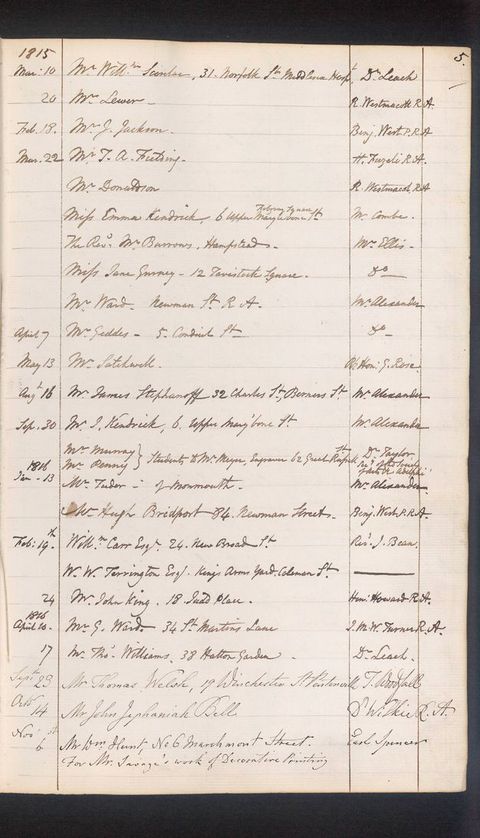 5.
1815
Mar: 10 Mr. Willm. Scoular, 31. Norfolk St. Middlesex Hospl. Dr. Leach
20 Mr. Lewer - R. Westmacott R.A.
Feb. 18. Mr. J. Jackson. Benj. West. P.R.A
Mar. 22 Mr. T. A. Fielding. H. Fuzeli R.A.
Mr. Donaldson R. Westmacott, R.A
Miss Emma Kendrick, 6 Upper Marylebone St. Fitzroy Square W. Combe.
The Revd. Mr. Burrows, Hampstead. Mr. Ellis.
Miss Jane Gurney - 12 Tavistock Square. Do
Mr. Ward. Newman St. R.A. Mr. Alexander
April 7 Mr. Geddes - 5. Conduit St. Do -
May 13 Mr. Satchwell. Rt. Hon: G. Rose.
Augt. 16 Mr. James Stephanoff 32 Charles St. Berners St. Mr. Alexander
Sep. 30 Mr. J. Kendrick, 6. Upper Mary'bone St. Mr. Alexander
Mr. Murray
Mr. Penny } Students to Mr. Meyer, Engraver 62 Great Russell St. Dr. Taylor
1816
Jan - 13 Mr. Tudor - of Monmouth. Mr. Alexander.
Mr. Hugh Bridport 84. Newman Street. Benj. West. P.R.A.
Feb: 19th. Willm. Carr Esqr. 24. New Broad St. Revd. J. Bean.
W. W. Torrington Esq. Kings Arms Yard. Coleman St.
24 Mr. John King. 18 Judd Place. Hen: Howard R.A.
1816
April 10. Mr. G. Ward. 34 St. Martins Lane J. M. W. Turner R.A.
17 Mr. Thos. Williams, 38 Hatton Garden Dr. Leach.
Sept 23 Mr Thomas Welsh, 19 Winchester St Pentonvill T. Woodfall
Octr 14 Mr John Zephaniah Bell D. Wilkie R.A.
Novr 6 Mr Wm Hunt, No 6. Marchmont Street. Earl Spencer
For Mr. Savage's work of Decorative Printing